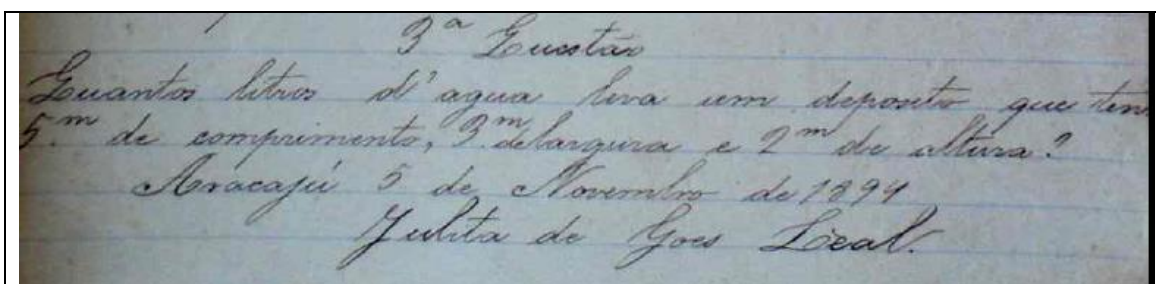 3ª Questão
Quantos litros d'agua leva um deposito que tem
5.m de comprimento, 3.m de largura e 2m de altura?
Aracajú 5 de Novembro de 1894
Julita de Goes Leal.